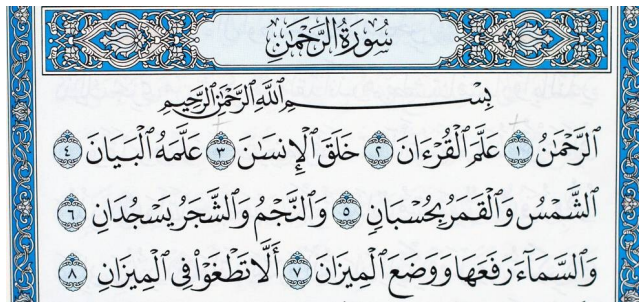 سُورَةُ الرَّحْمَٰنِ
بِسْمِ اللَّهِ الرَّحْمَٰنِ الرَّحِيمِ
الرَّحْمَٰنُ ١ عَلَّمَ الْقُرْءَانَ ٢ خَلَقَ الْإِنسَٰنَ ٣ عَلَّمَهُ الْبَيَانَ ٤
الشَّمْسُ وَالْقَمَرُ بِحُسْبَانٍ ٥ وَالنَّجْمُ وَالشَّجَرُ يَسْجُدَانِ ٦
وَالسَّمَآءَ رَفَعَهَا وَوَضَعَ الْمِيزَانَ ٧ أَلَّا تَطْغَوْا۟ فِي الْمِيزَانِ ٨